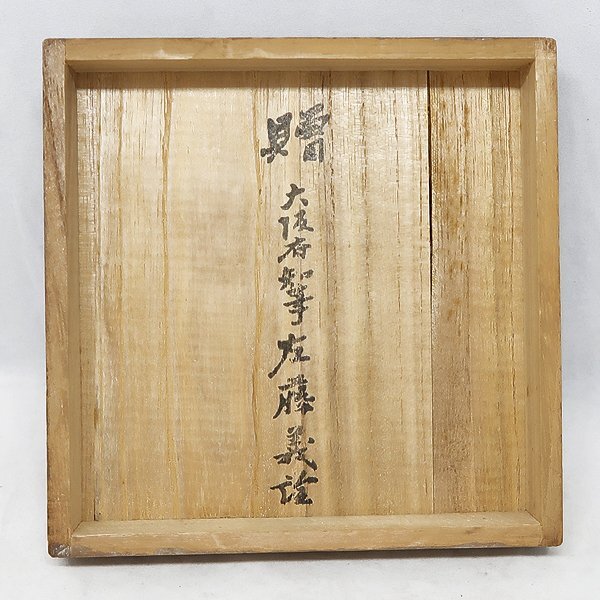 贈
大阪府知事左藤義詮